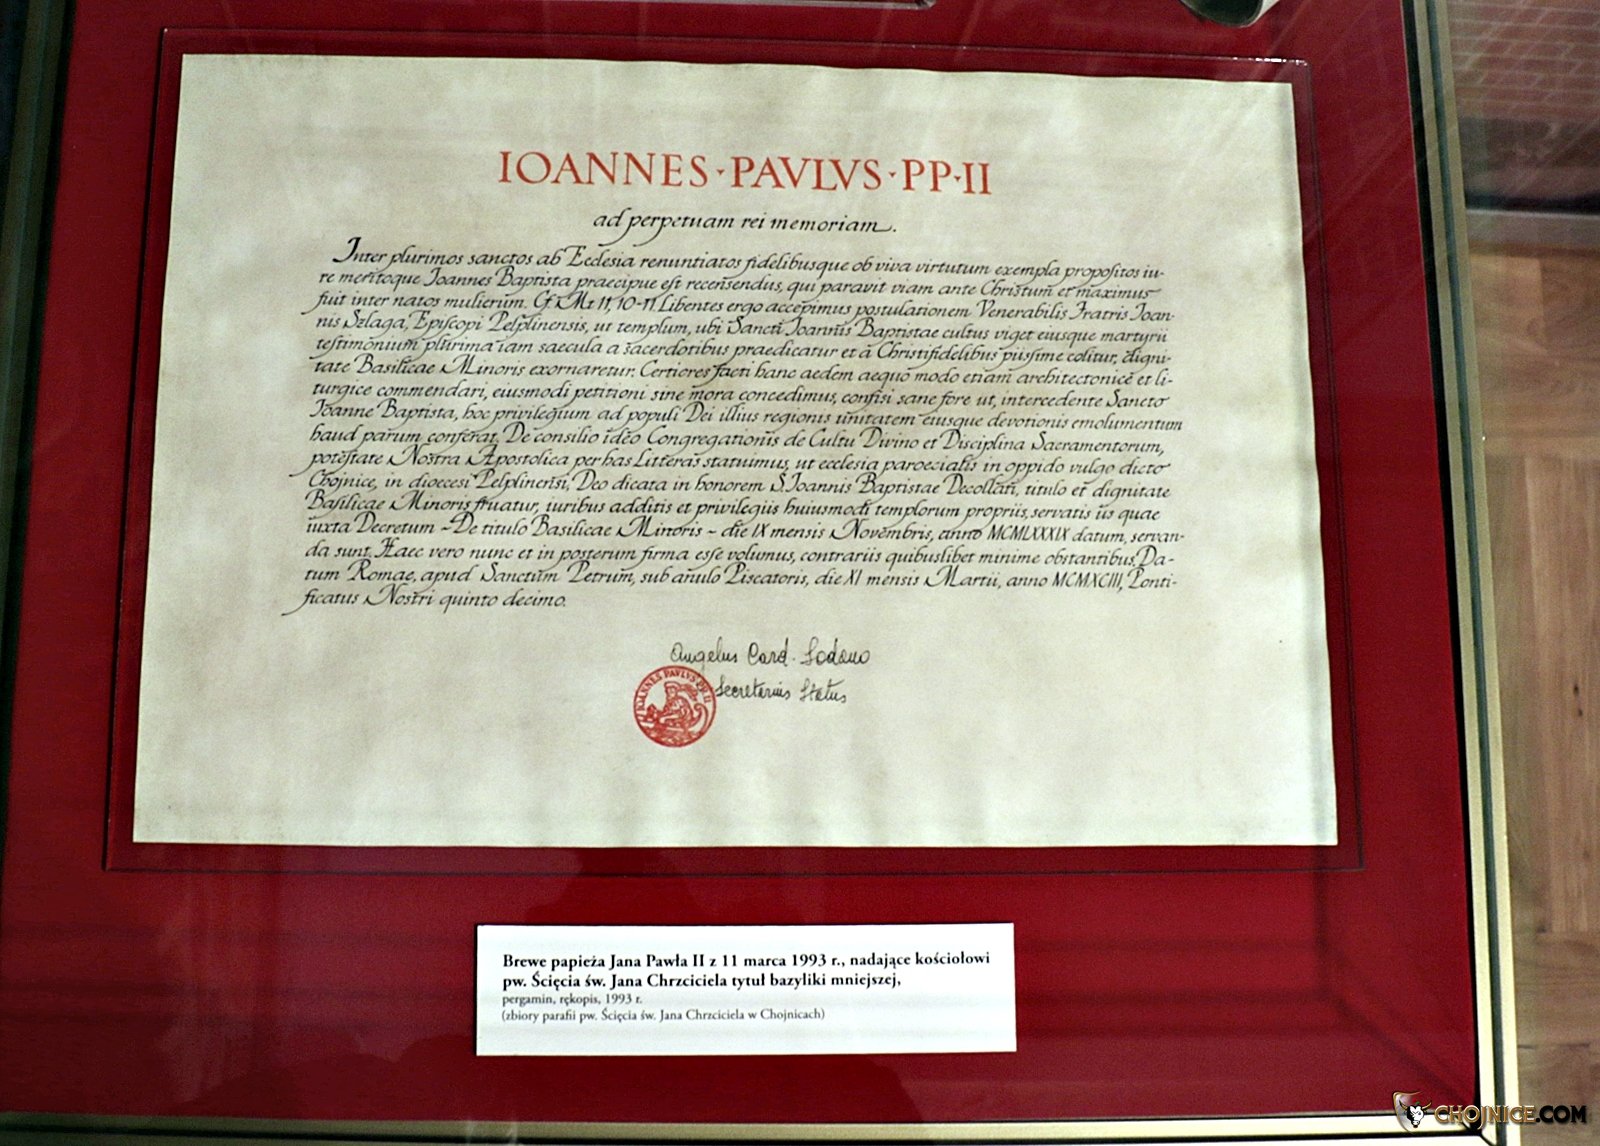 IOANNES · PAVLVS · PP · II
ad perpetuam rei memoriam.
Inter plurimos sanctos ab Ecclesia renuntiatos fidelibusque ob viva virtutum exempla propositos iu-
re meritoque Ioannes Baptista praecipue est recensendus, qui paravit viam ante Christum et maximus
fuit inter natos mulierum. Cf. Mt 11, 10-11. Libentes ergo accepimus postulationem Venerabilis Fratris Ioan-
nis Szlaga, Episcopi Pelplinensis, ut templum, ubi Sancti Ioannis Baptistae cultus viget eiusque martyrii
testimonium plurima iam saecula a sacerdotibus praedicatur et a Christifidelibus piissime colitur, digni-
tate Basilicae Minoris exornaretur. Certiores facti hanc aedem aequo modo etiam architectonice et li-
turgice commendari, eiusmodi petitioni sine mora concedimus, confisi sane fore ut, intercedente Sancto
Ioanne Baptista, hoc privilegium ad populi Dei illius regionis unitatem eiusque devotionis emolumentum
haud parum conferat. De consilio ideo Congregationis de Cultu Divino et Disciplina Sacramentorum,
potestate Nostra Apostolica per has Litteras statuimus, ut ecclesia paroecialis in oppido vulgo dicto
Chojnice, in dioecesi Pelplinensi, Deo dicata in honorem S. Ioannis Baptistae Decollati, titulo et dignitate
Basilicae Minoris fruatur, iuribus additis et privilegiis huiusmodi templorum propriis, servatis iis quae
iuxta Decretum - De titulo Basilicae Minoris - die IX mensis Novembris, anno MCMLXXXIX datum, servan-
da sunt. Haec vero nunc et in posterum firma esse volumus, contrariis quibuslibet minime obstantibus. Da-
tum Romae, apud Sanctum Petrum, sub anulo Piscatoris, die XI mensis Martii, anno MCMXCIII, Ponti-
ficatus Nostri quinto decimo.
Angelus Card. Sodano
Secretarius Status
IOANNES PAVLVS PP. II
Brewe papieża Jana Pawła II z 11 marca 1993 r., nadające kościołowi
pw. Ścięcia św. Jana Chrzciciela tytuł bazyliki mniejszej,
pergamin, rękopis, 1993 r.
(zbiory parafii pw. Ścięcia św. Jana Chrzciciela w Chojnicach)
CHOJNICE.COM